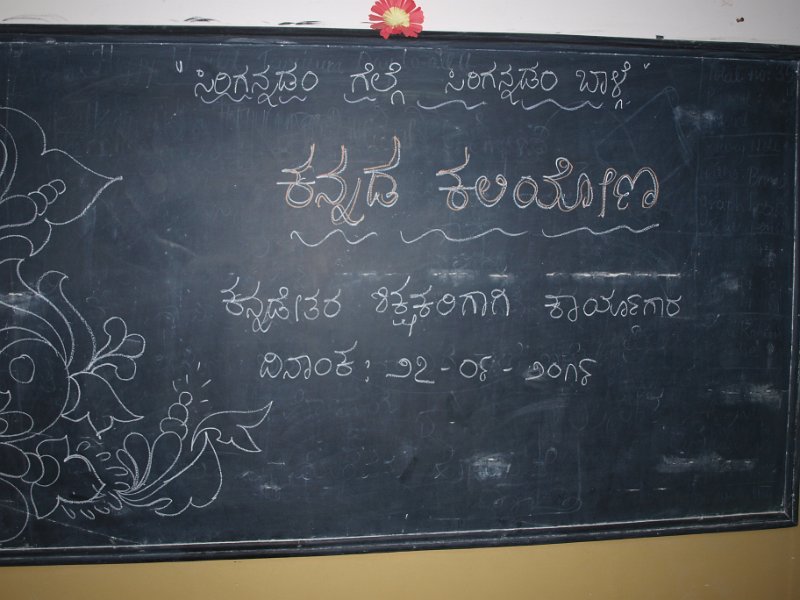 "ಸಿರಿಗನ್ನಡಂ ಗೆಲ್ಗೆ ಸಿರಿಗನ್ನಡಂ ಬಾಳ್ಗೆ"
ಕನ್ನಡ ಕಲಿಯೋಣ
ಕನ್ನಡೇತರ ಶಿಕ್ಷಕರಿಗಾಗಿ ಕಾರ್ಯಾಗಾರ
ದಿನಾಂಕ: ೨೭-೦೯-೨೦೧೯